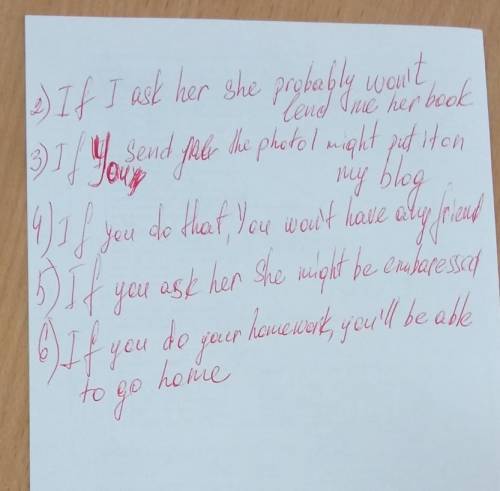 2) If I ask her she probably won't
lend me her book
3) If you send me the photo I might put it on
my blog
4) If you do that, You won't have any friend
5) If you ask her she might be embaressed
6) If you do your homework, you'll be able
to go home